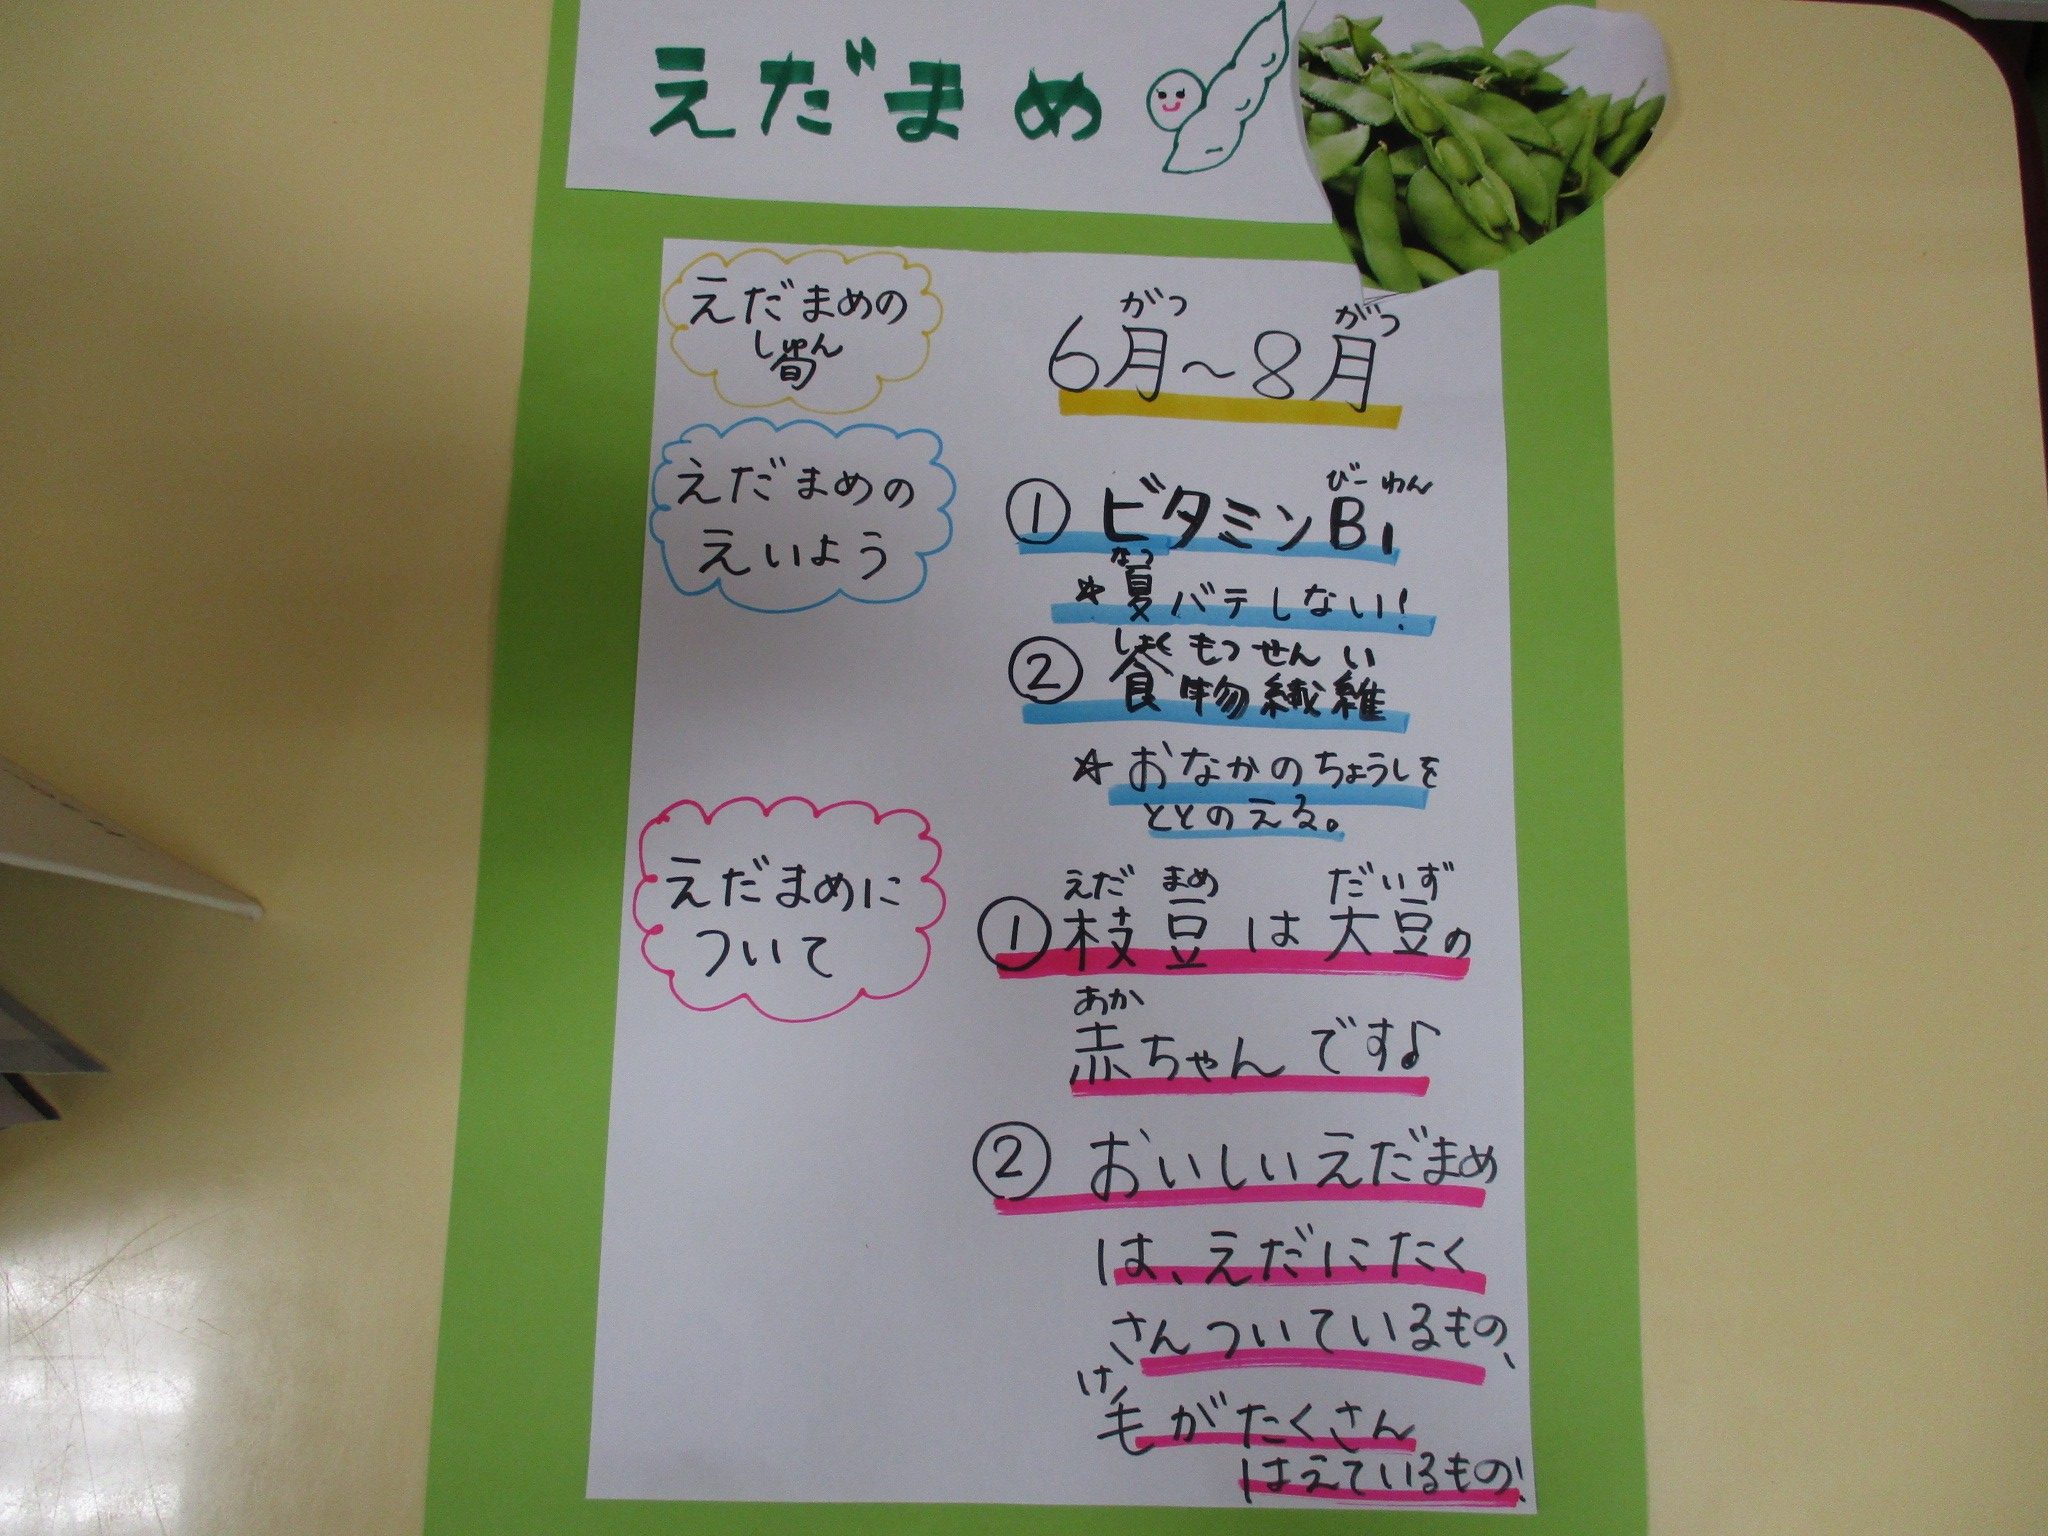 えだまめ
えだまめの
しゅん
旬
がつ がつ
6月～8月
えだまめの
えいよう
びーわん
① ビタミンB1
なつ
☆夏バテしない!
しょくもつせんい
② 食物繊維
☆おなかのちょうしを
ととのえる。
えだまめに
ついて
えだ まめ だいず
①枝豆は大豆の
あか
赤ちゃんです♪
② おいしいえだまめ
は、えだにたく
さんついているもの、
け
毛がたくさん
はえているもの!